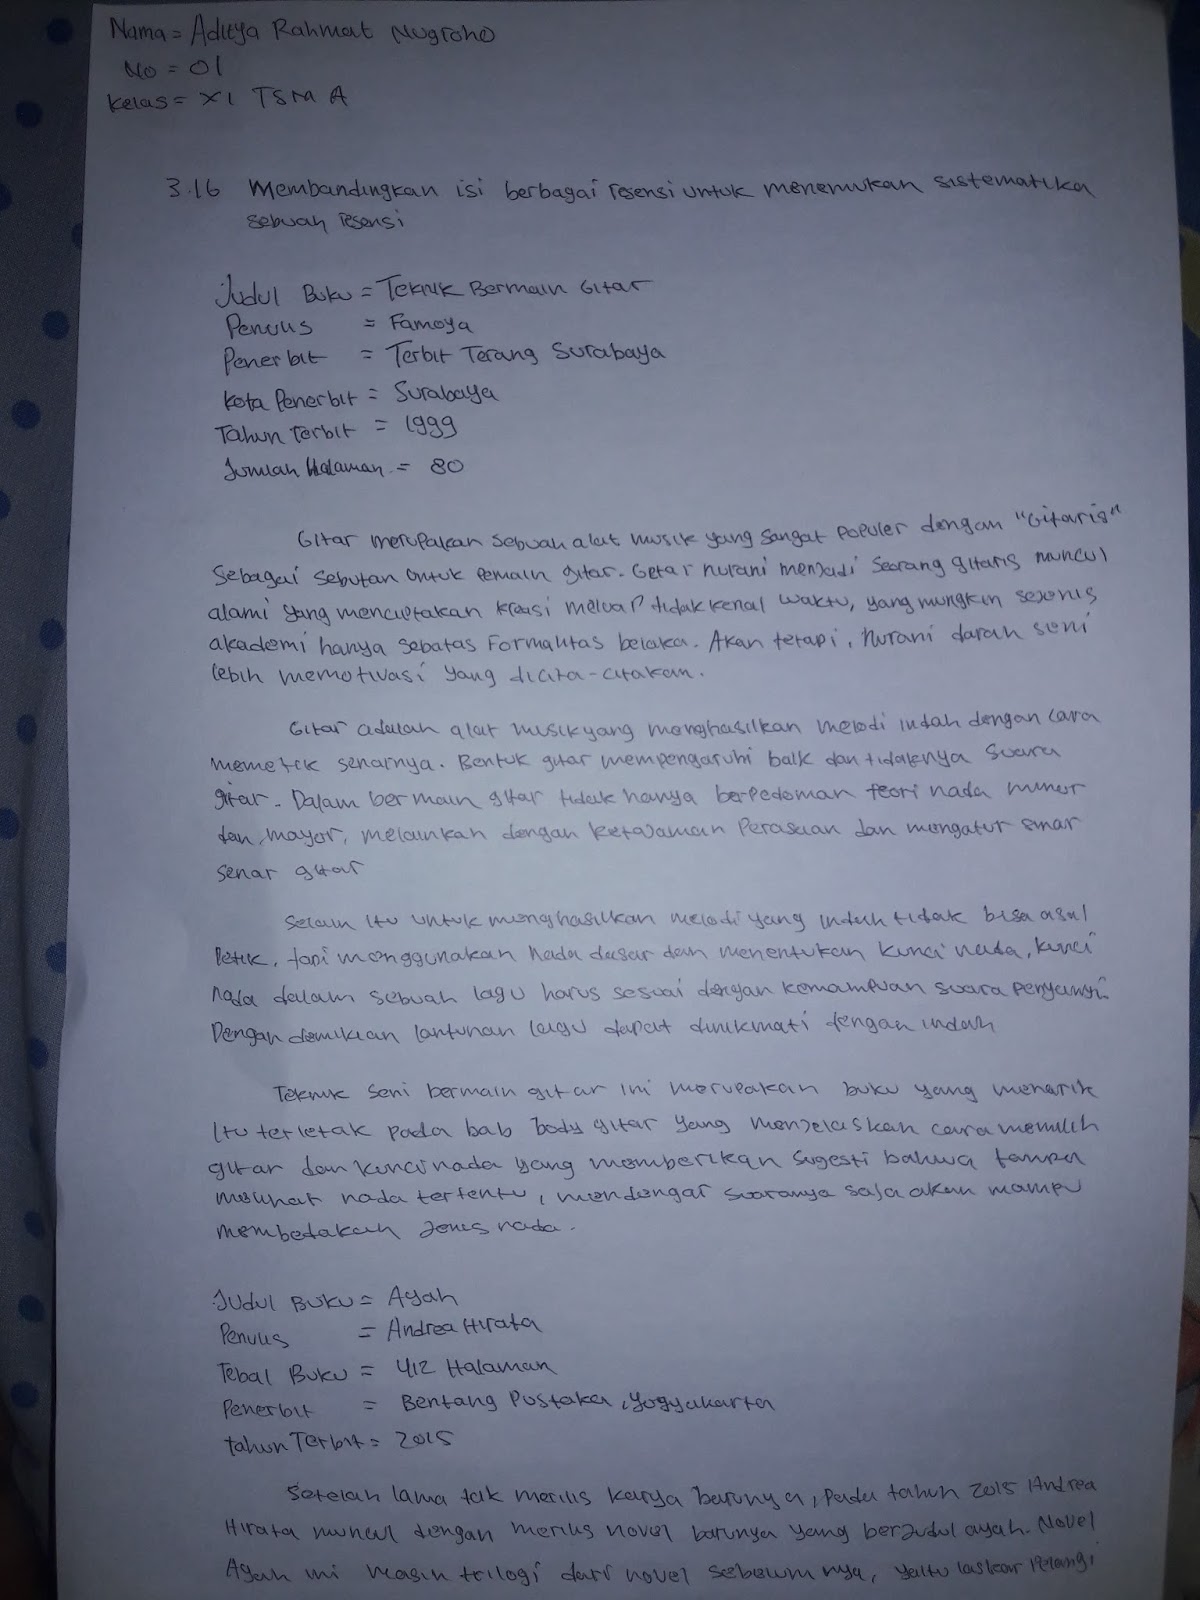 Nama = Aditya Rahmat Nugroho
No = 01
Kelas = XI TSM A
3.16 Membandingkan isi berbagai resensi untuk menemukan sistematika
sebuah resensi
Judul Buku = Teknik Bermain Gitar
Penulis = Famoya
Penerbit = Terbit Terang Surabaya
Kota Penerbit = Surabaya
Tahun Terbit = 1999
Jumlah Halaman = 80
Gitar merupakan sebuah alat musik yang sangat populer dengan "Gitaris"
sebagai sebutan untuk pemain gitar. Getar nurani menjadi seorang gitaris muncul
alami yang menciptakan kreasi meluap tidak kenal waktu, yang mungkin sejenis
akademi hanya sebatas Formalitas belaka. Akan tetapi, nurani darah seni
lebih memotivasi yang dicita-citakan.
Gitar adalah alat musik yang menghasilkan melodi indah dengan cara
memetik senarnya. Bentuk gitar mempengaruhi baik dan tidaknya suara
gitar. Dalam bermain gitar tidak hanya berpedoman teori nada minor
dan mayor, melainkan dengan ketajaman Perasaan dan mengatur senar
senar gitar
Selain itu untuk menghasilkan melodi yang indah tidak bisa asal
Petik, tapi menggunakan nada dasar dan menentukan kunci nada, kunci
nada dalam sebuah lagu harus sesuai dengan kemampuan suara penyanyi.
Dengan demikian lantunan lagu dapat dinikmati dengan indah
Teknik seni bermain gitar ini merupakan buku yang menarik
Itu terletak pada bab body gitar yang menjelaskan cara memilih
gitar dan kunci nada yang memberikan sugesti bahwa tanpa
melihat nada tertentu, mendengar suaranya saja akan mampu
membedakan jenis nada.
Judul Buku = Ayah
Penulis = Andrea Hirata
Tebal Buku = 412 Halaman
Penerbit = Bentang Pustaka, Yogyakarta
tahun Terbit = 2015
Setelah lama tak merilis karya barunya, Pada tahun 2015 Andrea
Hirata muncul dengan merilis novel barunya yang berjudul ayah. Novel
Ayah ini masih trilogi dari novel sebelumnya, yaitu laskar Pelangi